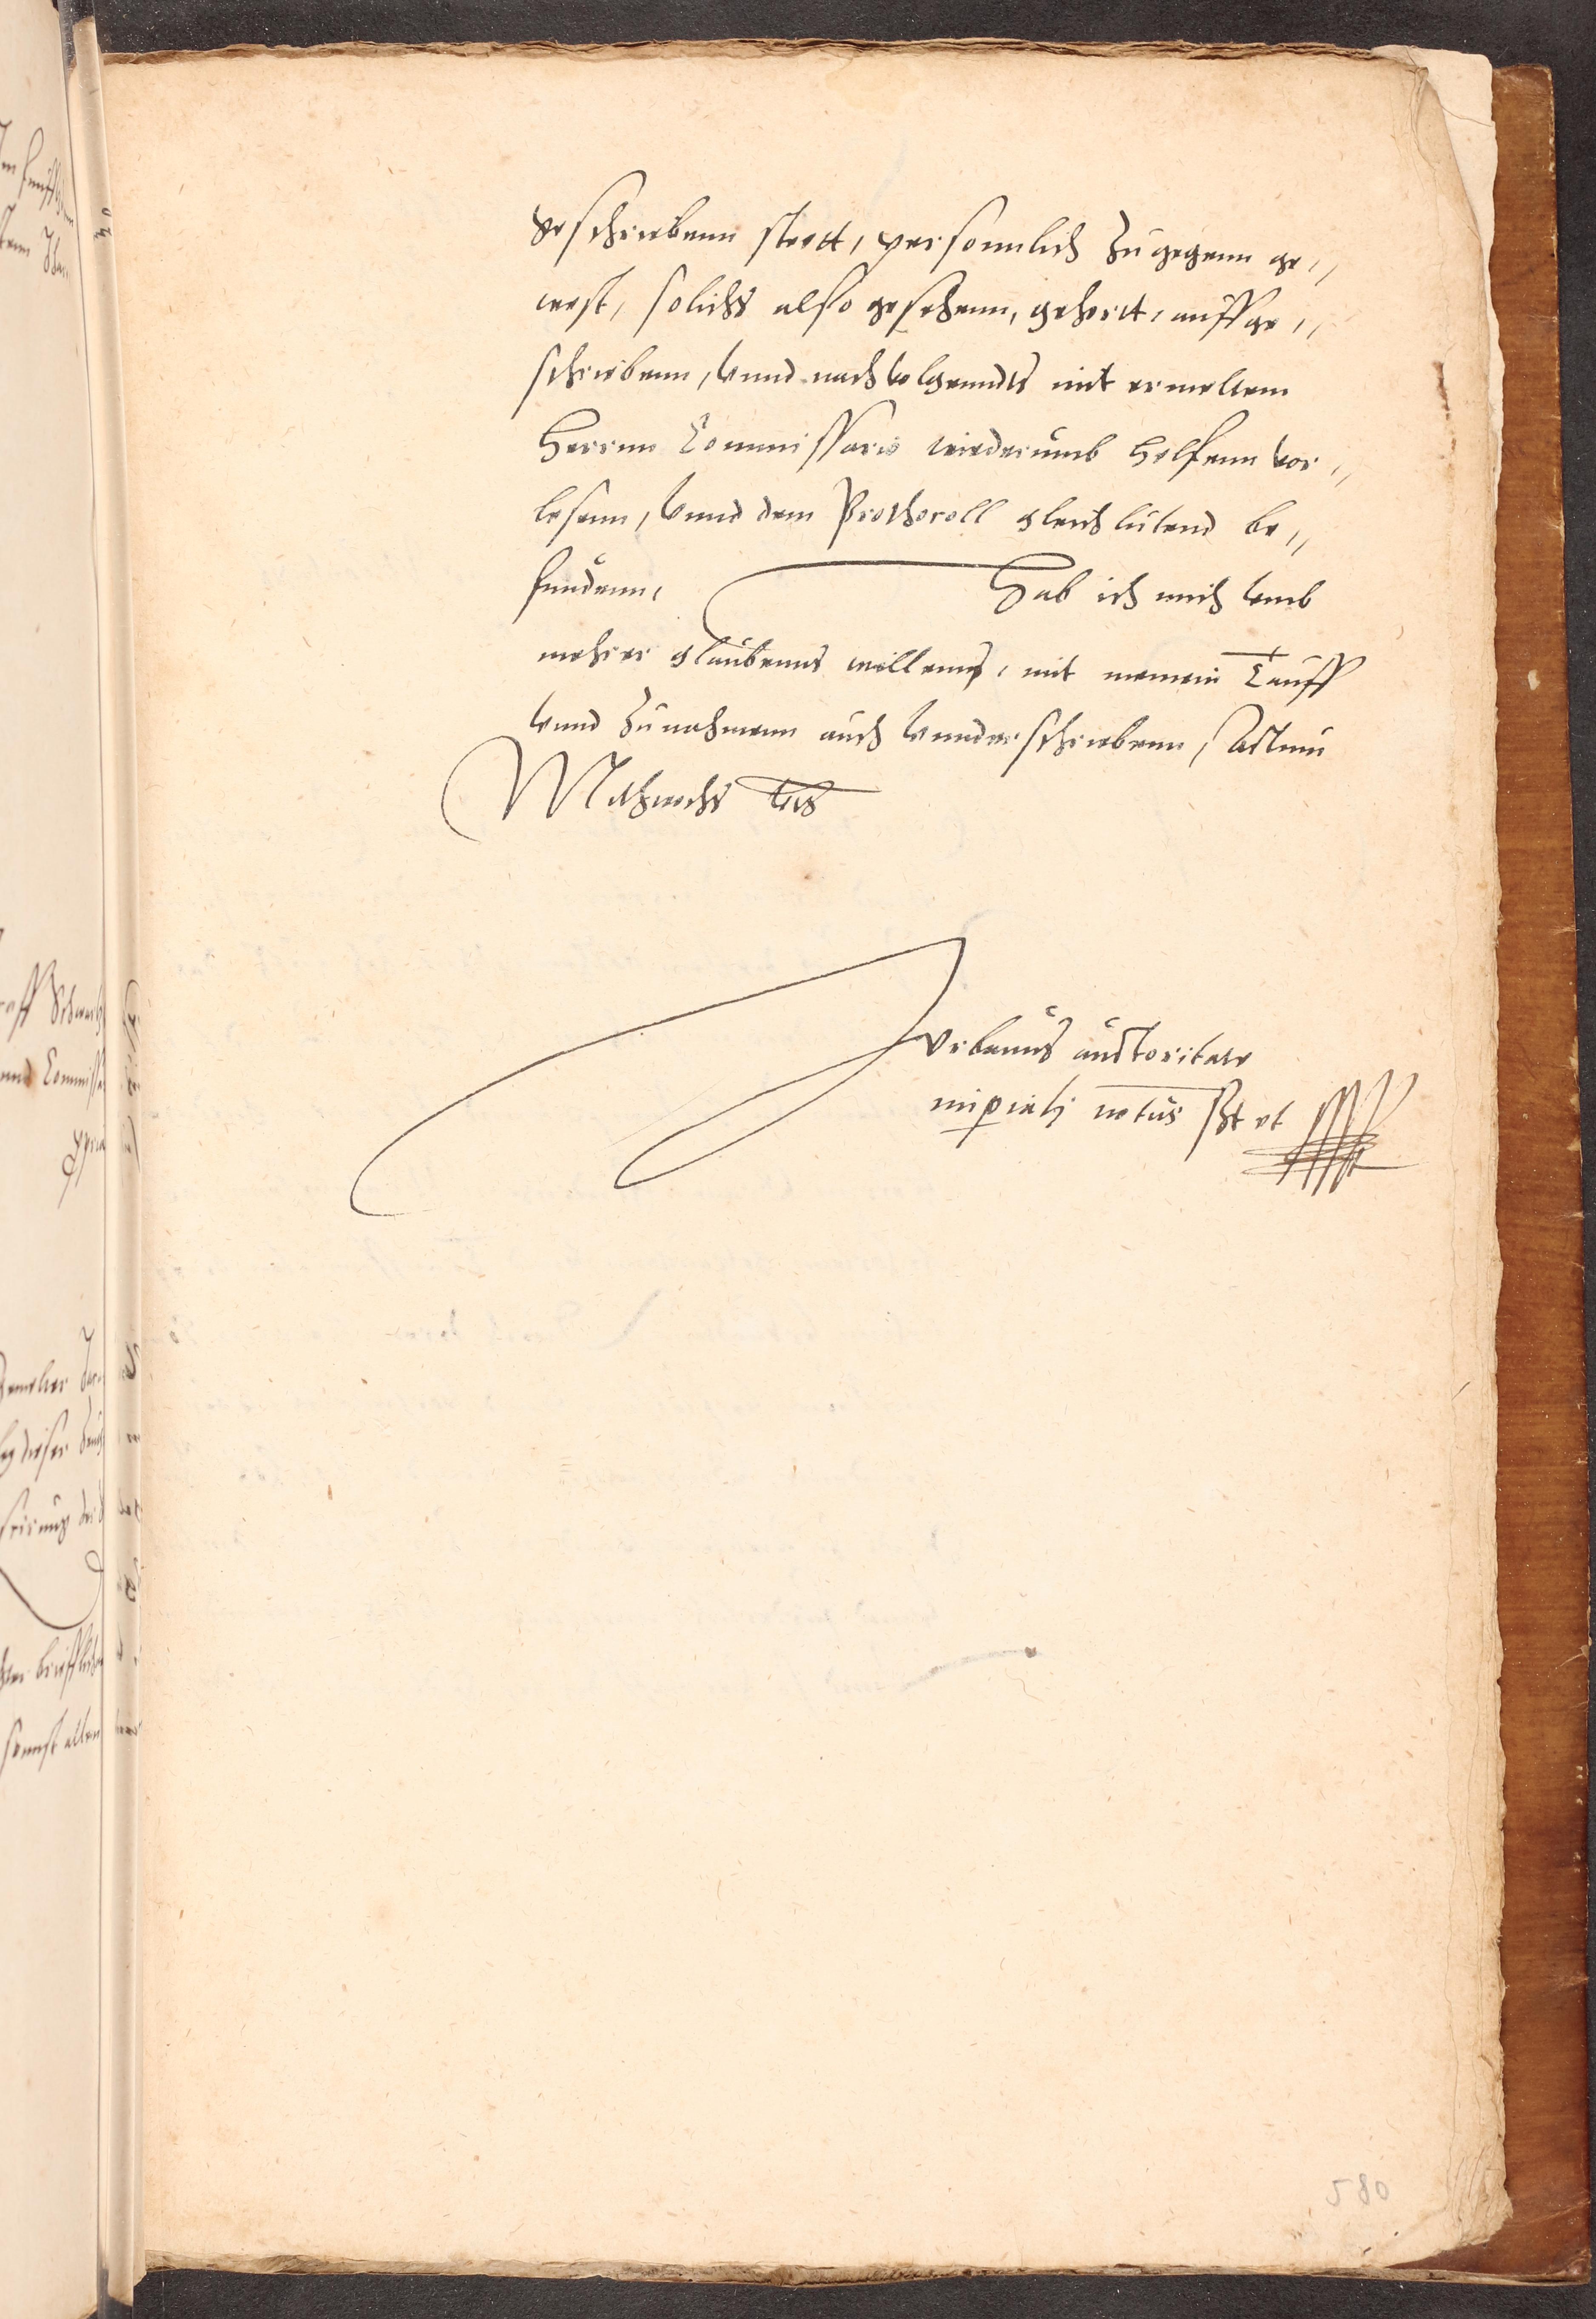 geschriebenn stett, personnlich zugegenn ge„
west, solichs also gesehenn, gehortt, auffge„
schriebenn, vnnd nachvolgenndts mit ermeltem
Herrnn Commissario wiederumb helfenn vor„
lesenn, vnnd dem Prothocoll gleichlutend be„
fundenn, Hab ich mich vmb
mehrer glaubenns willenns, mit meinem Tauff
vnnd zunahmenn auch vnnderschriebenn, Actum
Mithwochs vts
Vrbanus auctoritate
imperiali notarius sst et
580